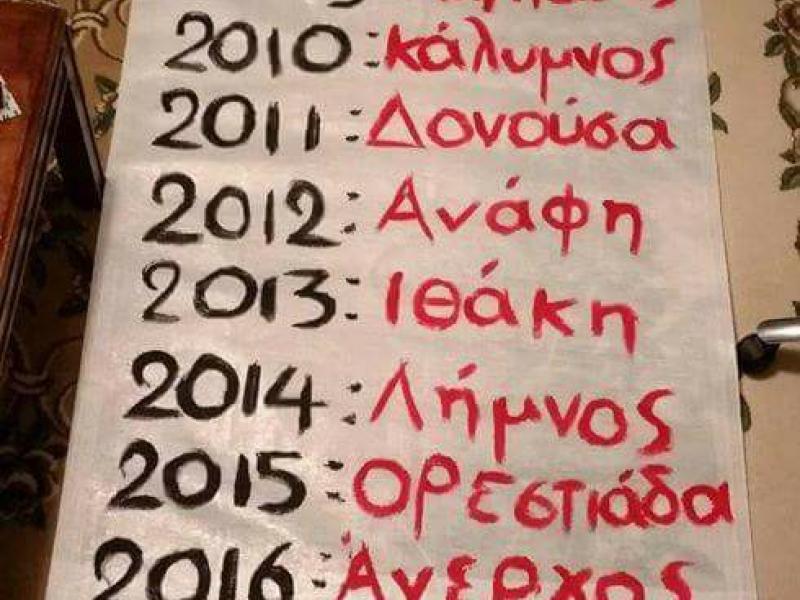 2010:κάλυμνος
2011:Δονούσα
2012:Ανάφη
2013:Ιθάκη
2014:Λήμνος
2015:ΟΡεστιάδα
2016:Άνεργος